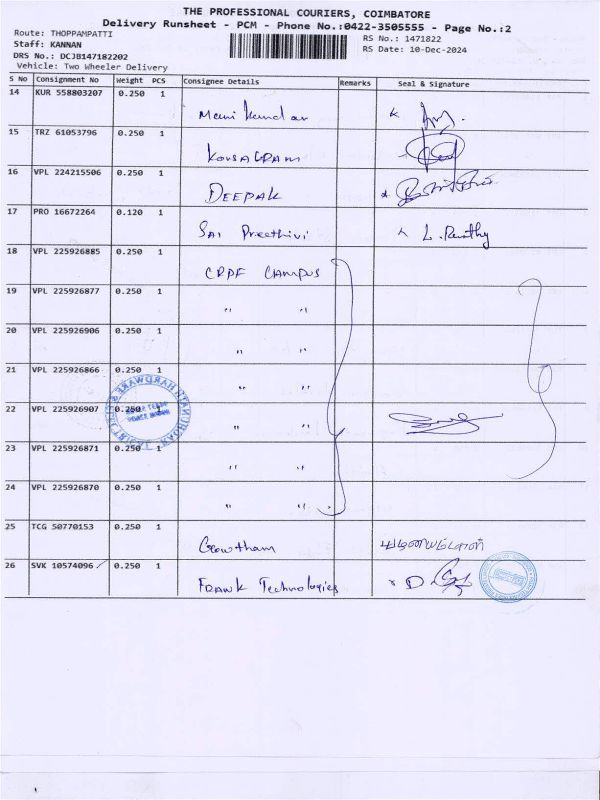 THE PROFESSIONAL COURIERS, COIMBATORE
Delivery Runsheet - PCM - Phone No.:0422-3505555 - Page No.:2
Route: THOPPAMPATTI
RS No.: 1471822
Staff: KANNAN
RS Date: 10-Dec-2024
DRS No.: DCJB147182202
Vehicle: Two Wheeler Delivery
S No Consignment No Weight PCS Consignee Details Remarks Seal & Signature
14 KUR 558803207 0.250 1
15 TRZ 61053796 0.250 1
16 VPL 224215506 0.250 1
DEEPAK
17 PRO 16672264 0.120 1
Sai Preethivi
18 VPL 225926885 0.250 1
CRPF CAMPUS
19 VPL 225926877 0.250 1
" "
20 VPL 225926906 0.250 1
" "
21 VPL 225926866 0.250 1
" "
22 VPL 225926907 0.250 1
" "
23 VPL 225926871 0.250 1
" "
24 VPL 225926870 0.250 1
" "
25 TCG 50770153 0.250 1
Gowtham
26 SVK 10574096 0.250 1
FRANK Technologies